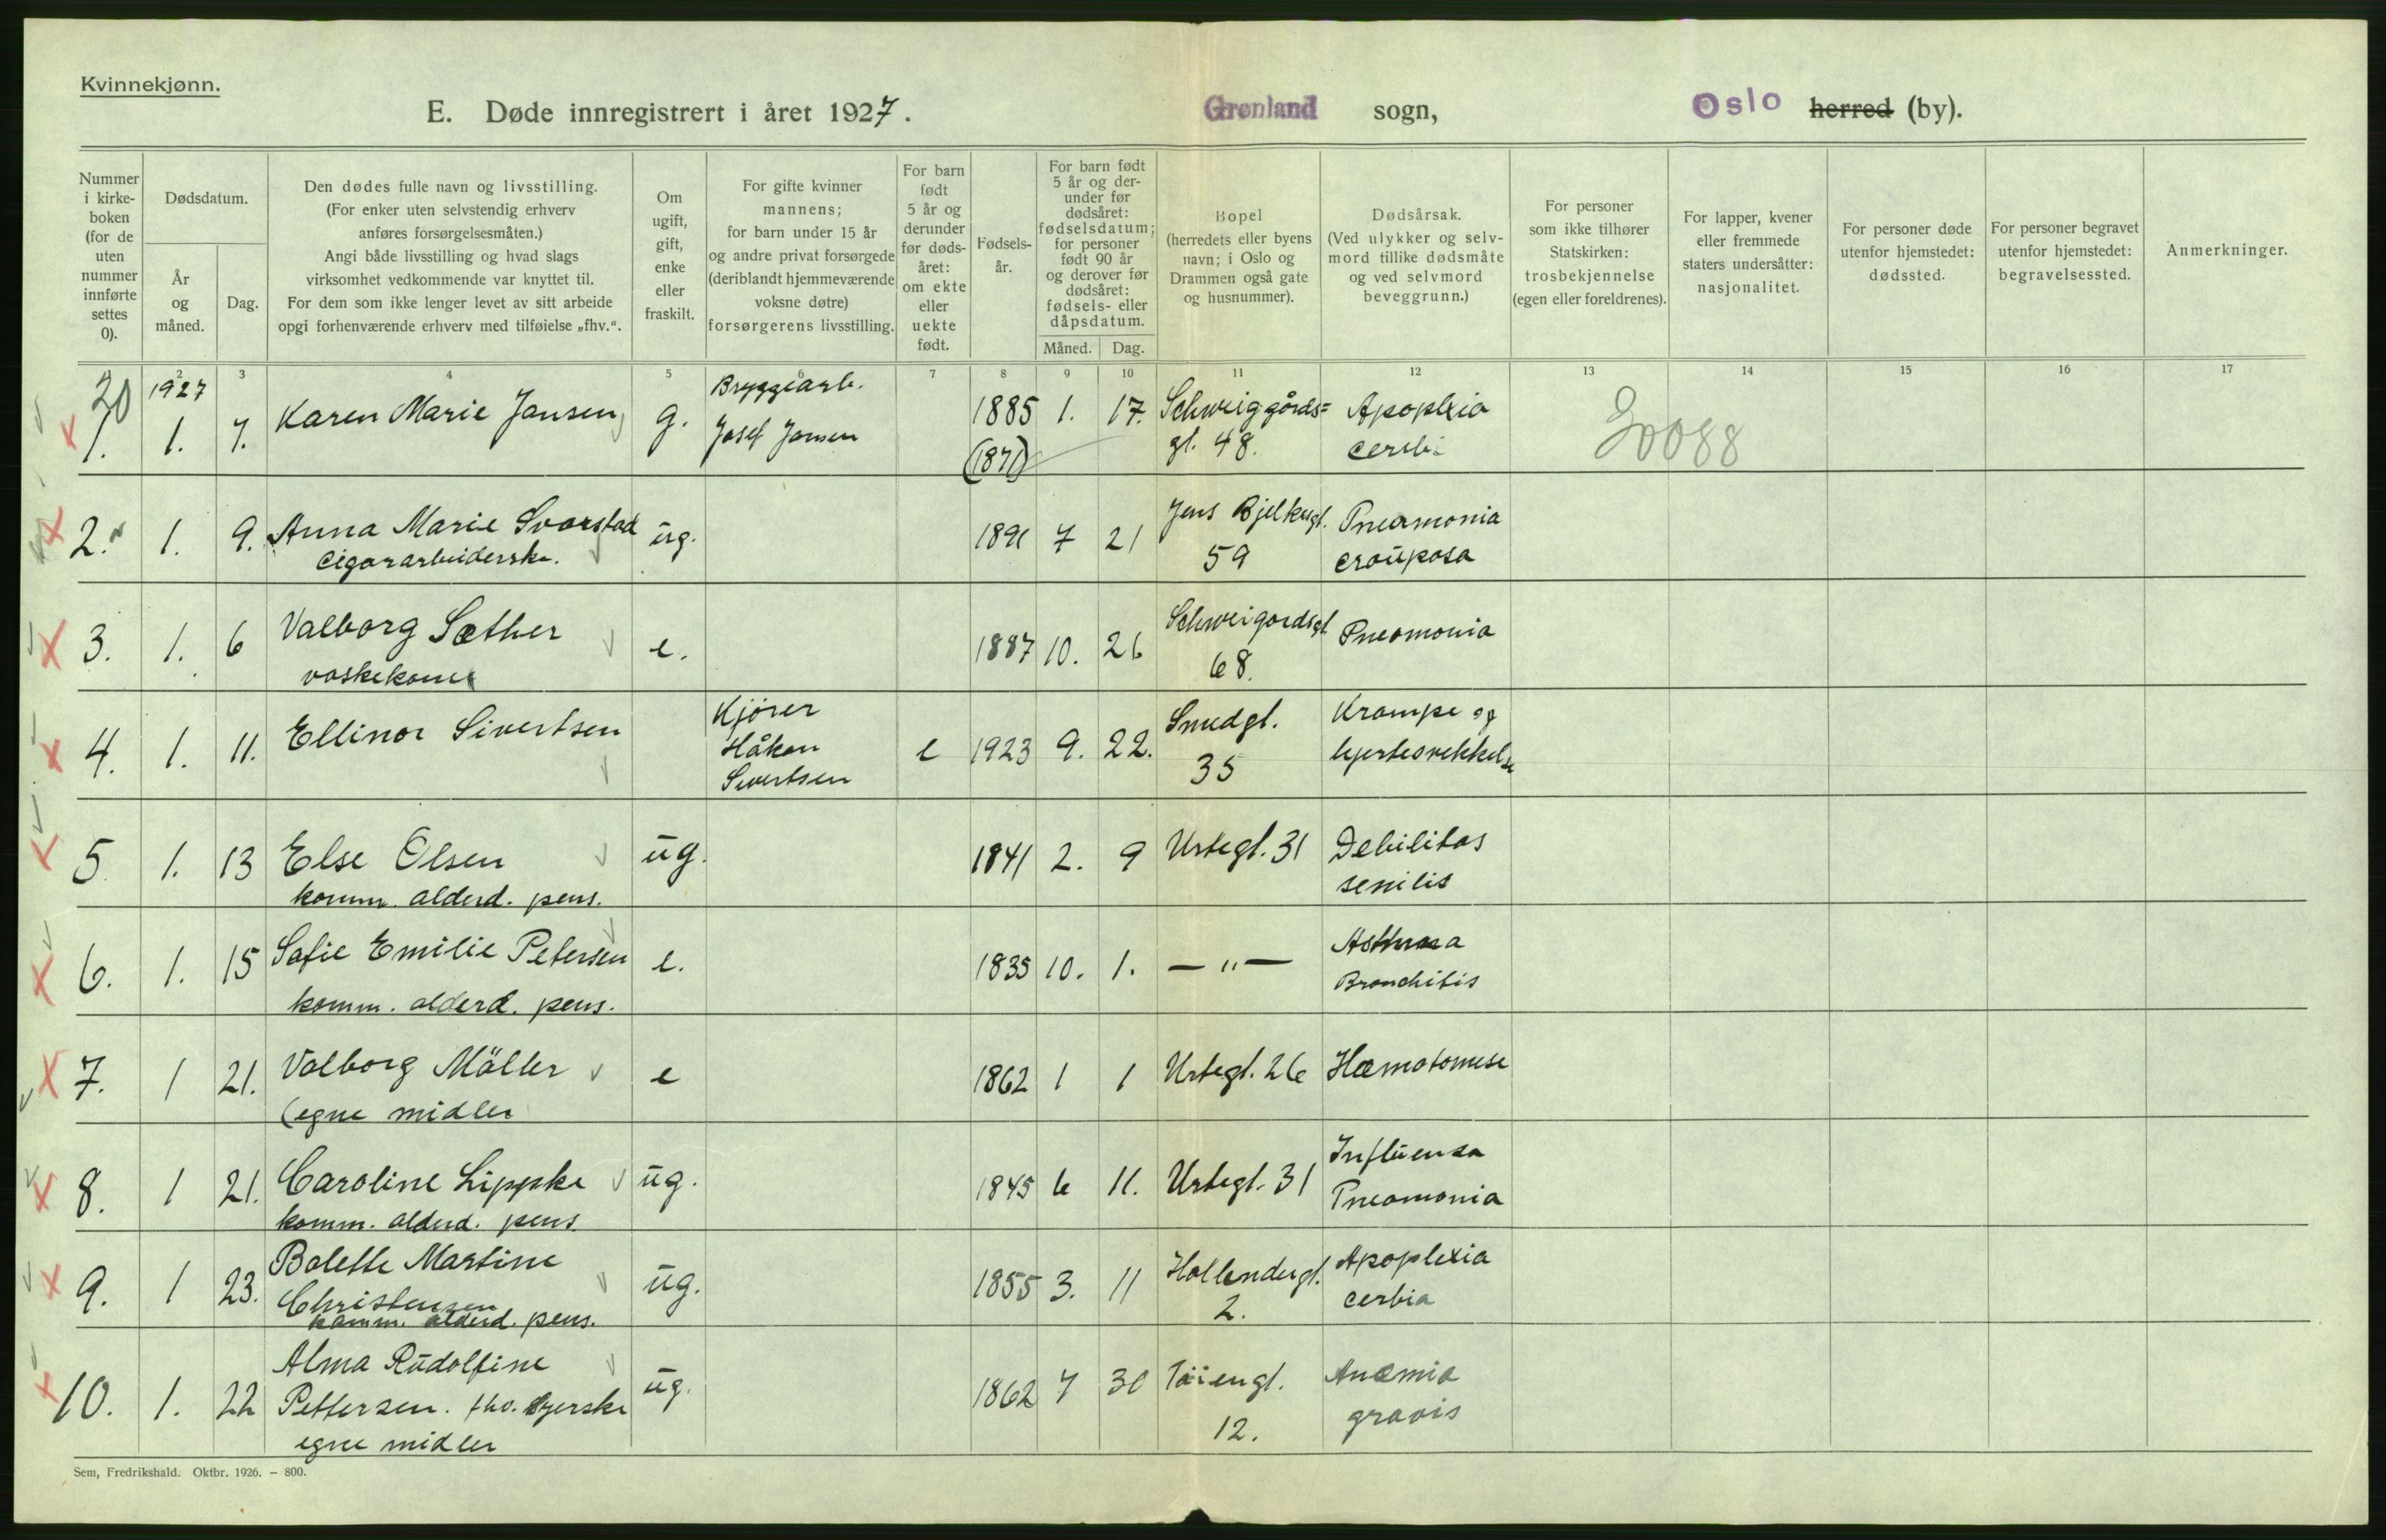 Kvinnekjønn.
E. Døde innregistrert i året 1927.
Grønland sogn,
Oslo herred (by).
Nummer i kirke-boken (for de uten nummer innførte settes 0).
Dødsdatum.
År og måned.
Dag.
Den dødes fulle navn og livsstilling.
(For enker uten selvstendig erhverv
anføres forsørgelsesmåten.)
Angi både livsstilling og hvad slags
virksomhet vedkommende var knyttet til.
For dem som ikke lenger levet av sitt arbeide
opgi forhenværende erhverv med tilføielse „fhv.“.
Om
ugift,
gift,
enke
eller
fraskilt.
For gifte kvinner
mannens;
for barn under 15 år
og andre privat forsørgede
(deriblandt hjemmeværende
voksne døtre)
forsørgerens livsstilling.
For barn
født
5 år og
derunder
før døds-
året:
om ekte
eller
uekte
født.
Fødsels-
år.
For barn født
5 år og der-
under før
dødsåret:
fødselsdatum;
for personer
født 90 år
og derover før
dødsåret:
fødsels- eller
dåpsdatum.
Måned. Dag.
Bopel
(herredets eller byens
navn; i Oslo og
Drammen også gate
og husnummer).
Dødsårsak.
(Ved ulykker og selv-
mord tillike dødsmåte
og ved selvmord
beveggrunn.)
For personer
som ikke tilhører
Statskirken:
trosbekjennelse
(egen eller foreldrenes).
For lapper, kvener
eller fremmede
staters undersåtter:
nasjonalitet.
For personer døde
utenfor hjemstedet:
dødssted.
For personer begravet
utenfor hjemstedet:
begravelsessted.
Anmerkninger.
2 3 4 5 6 7 8 9 10 11 12 13 14 15 16 17
20 1927 Bryggearb.
1. 1. 7. Karen Marie Jansen g. Josef Jansen 1885 1. 17. Schweiggårds= Apoplxia
(1871) gt. 48. cerebi
2. 1. 9. Anna Marie Svarstad ug. 1891 7 21 Jens Bjelkesgt. Pneumonia
Cigararbeiderske. 59 crouposa
3. 1. 6 Valborg Sæther e. 1887 10. 26 Schweigardsgt Pneomonia
vaskekone 68.
4. 1. 11. Ellinor Sivertsen Kjörer e 1923 9. 22. Smedgt. Krampe og
Håkon 35 hjertesvekkelse
Sivertsen
5. 1. 13 Else Olsen ug. 1841 2. 9 Urtegt. 31 Debilitas
komm. alderd. pens. senilis
6. 1. 15 Sofie Emilie Petersen e. 1835 10. 1. — " — Asthma
komm. alderd. pens. Bronchitis
7. 1 21. Valborg Möller e 1862 1 1 Urtegt. 26 Hæmatomese
(egne midler
8. 1 21. Caroline Lippke ug. 1845 6 11. Urtegt. 31 Influensa
komm. alderd. pens. Pneomonia
9. 1 23. Bolette Martine ug. 1855 3. 11 Hollendergt. Apoplexia
Christensen 2. cerbia
komm. alderd. pens.
10. 1. 22 Alma Rudolfine ug. 1862 7 30 Töiengt. Anæmia
Pettersen. fhv. syerske 12. gravis
egne midler
Sem, Fredrikshald. Oktbr. 1926. – 800.